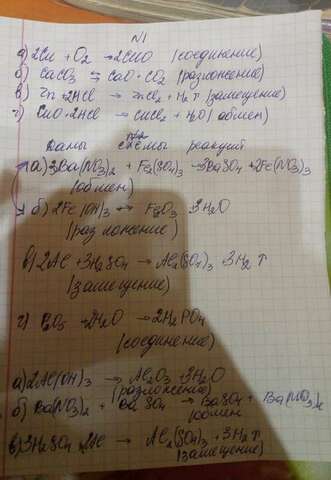 N1
а) 2Cu + O2 → 2CuO (соединение)
б) CaCO3 ⇆ CaO + CO2 (разложение)
в) Zn + 2HCl → ZnCl2 + H2↑ (замещение)
г) CuO + 2HCl → CuCl2 + H2O (обмен)
Даны схемы реакций
а) 3Ba(NO3)2 + Fe2(SO4)3 → 3BaSO4 + 2Fe(NO3)3
(обмен)
б) 2Fe(OH)3 → Fe2O3 3H2O
(разложение)
в) 2Al + 3H2SO4 → Al2(SO4)3 + 3H2↑
(замещение)
г) P2O5 H2O → 2H2PO4
(соединение)
а) 2Al(OH)3 → Al2O3 3H2O
(разложение)
б) Ba(NO3)2 + SO4 → BaSO4 + Ba(NO3)2
(обмен
в) 3H2SO4 2Al → Al2(SO4)3 + 3H2↑
(замещение)